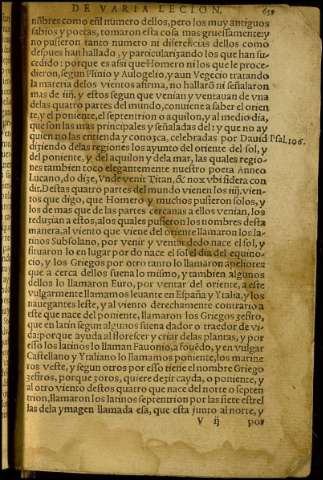 DE VARIA LECION.
nõbres como enl numero dellos, pero los muy antiguos
sabios y poetas, tomaron esta cosa mas gruessamente: y
no pusieron tanto numero ni diferẽcias dellos como
despues han hallado, y particularizando los que han su-
cedido: porque es assi que Homero ni los que le proce-
dieron, segun Plinio y Aulogelio, y aun Vegecio tratando
la materia delos vientos afirma, no hallarõ ni señalaron
mas de iiij, y estos segun que venian y ventauan de vna
delas quatro partes del mundo, conuiene a saber el orien
te, y el poniente, el septentrion o aquilon, y al medio dia,
que son las mas principales y señaladas del: y que no ay
quien no las entienda y conozca, celebradas por Dauid Psal. 106.
diziendo delas regiones los ayunto del oriente del sol, y
del poniente, y del aquilon y dela mar, las quales regio-
nes tambien toco elegantemente nuestro poeta Anneo
Lucano, do dize, Vnde venit Titan, & nox vbi sidera con
dit. Destas quatro partes del mundo vienen los iiij. vien-
tos que digo, que Homero y muchos pusieron solos, y
los de mas que de las partes cercanas a ellos venian, los
reduzian a estos, a los quales pusieron los nombres desta
manera, al viento que viene del oriente llamaron los la-
tinos Subsolano, por venir y ventar dedo nace el sol, y
situaron lo en lugar por do nace el sol el dia del equino-
cio, y los Griegos por otro tanto lo llamaron apeliotez
que a cerca dellos suena lo mismo, y tambien algunos
dellos lo llamaron Euro, por ventar del oriente, a este
vulgarmente llamamos leuante en España y Ytalia, y los
nauegantes leste, y al viento derechamente contrario a
este que nace del poniente, llamaron los Griegos zefiro,
que en latin segun algunos suena dador o traedor de vi-
da: porque ayuda al florescer y criar delas plantas, y por
esso los latinos lo llaman Fauonio, a fouẽdo, y en vulgar
Castellano y Ytaliano lo llamamos poniente, los marine
ros veste, y segun otros por esso tiene el nombre Griego
zefiros, porque zoros, quiere dezir cayda, o poniente, y
al otro viento destos quatro que nace del norte o septen
trion, llamaron los latinos septentrion por las siete estrel
las dela ymagen llamada osa, que esta junto al norte, y
V ij por